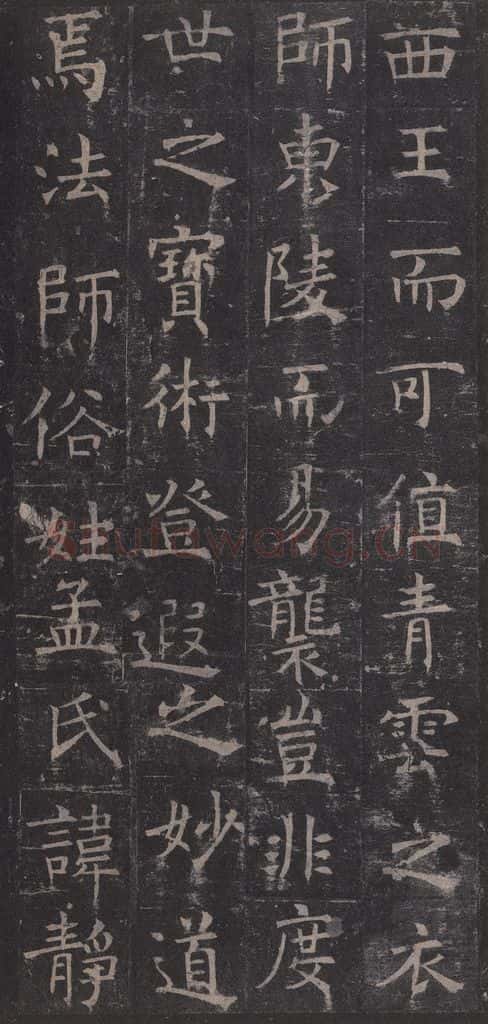 西王而可值青雲之衣
師東陵而易襲豈非度
世之寶術登遐之妙道
焉法師俗姓孟氏諱靜
shufawang.cn